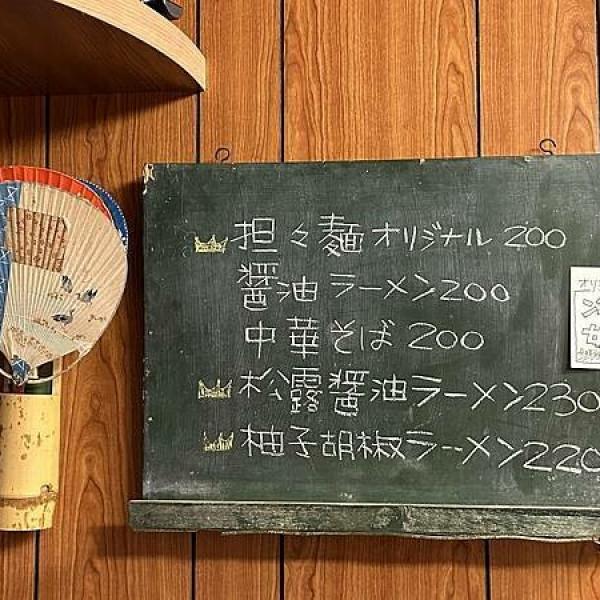 担々麺オリジナル 200
醤油ラーメン200
中華そば 200
松露醤油ラーメン230
柚子胡椒ラーメン220
オリジ